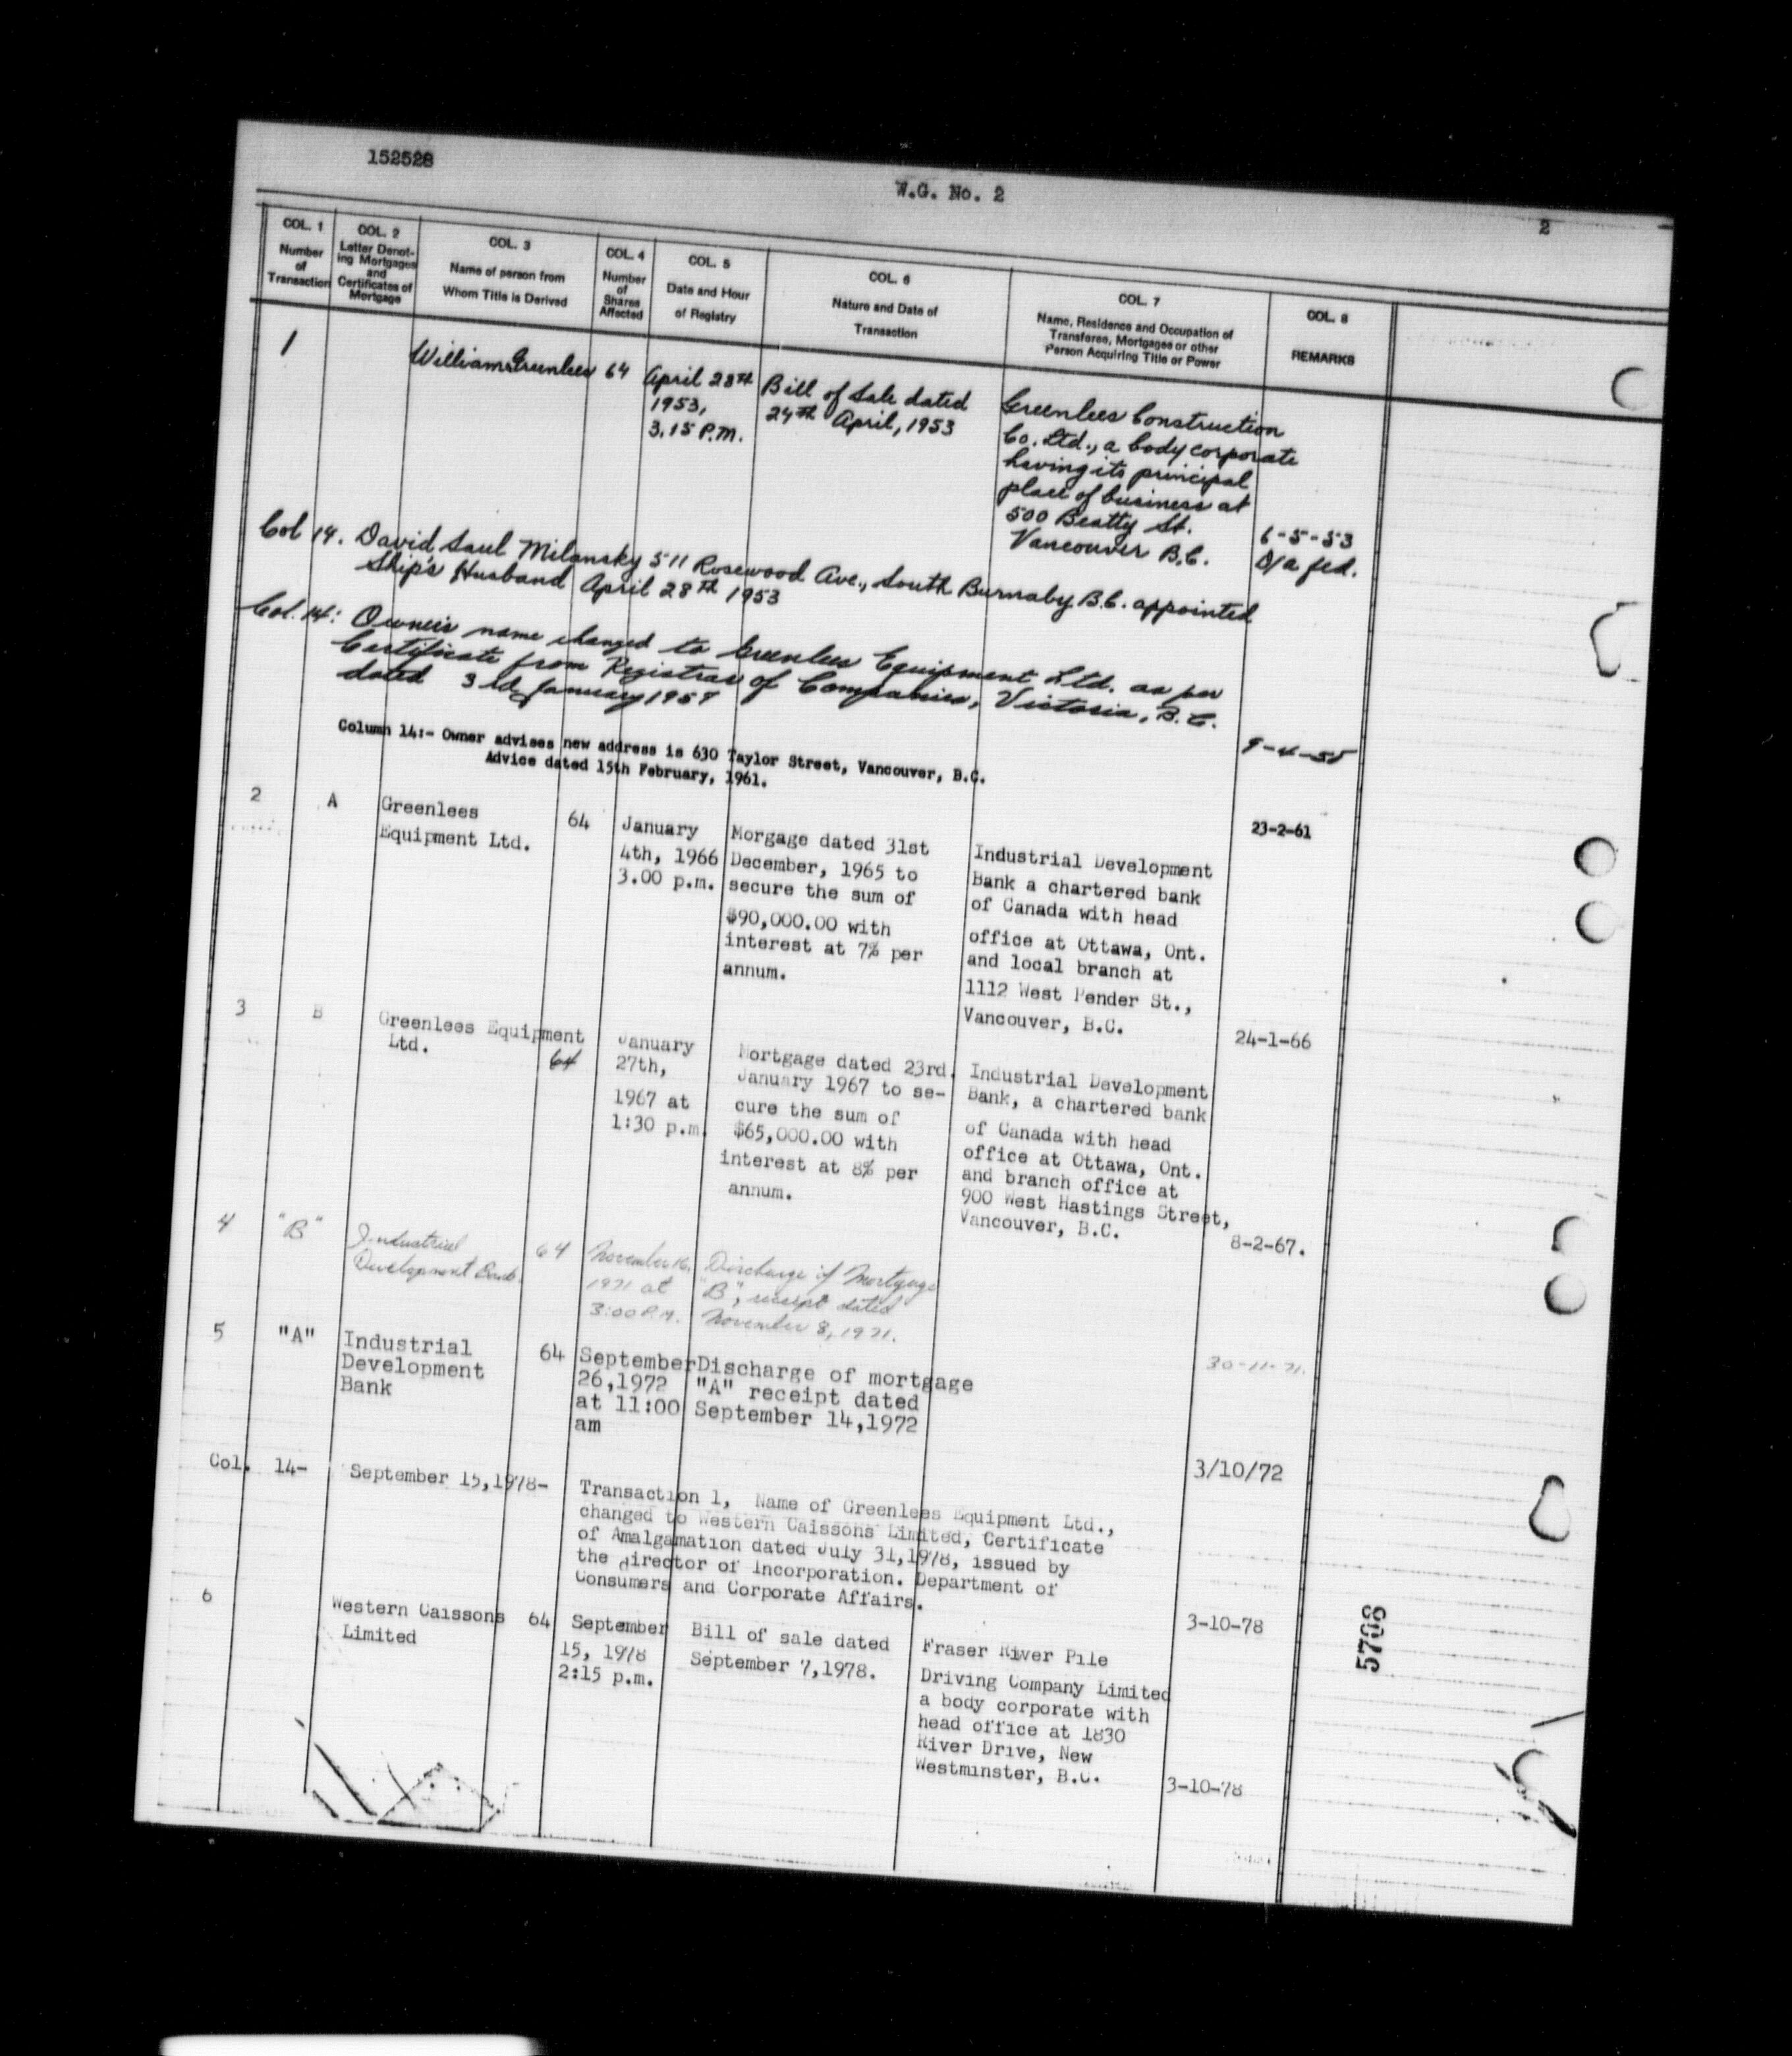 152528
W.G. No. 2
2
COL. 1
Number
of
Transaction
COL. 2
Letter Denot-
ing Mortgages
and
Certificates of
Mortgage
COL. 3
Name of person from
Whom Title is Derived
COL. 4
Number
of
Shares
Affected
COL. 5
Date and Hour
of Registry
COL. 6
Nature and Date of
Transaction
COL. 7
Name, Residence and Occupation of
Transferee, Mortgagee or other
Person Acquiring Title or Power
COL. 8
REMARKS
1
William Greenlees
64
April 28th
1953,
3.15 P.M.
Bill of Sale dated
24th April, 1953
Greenlees Construction
Co. Ltd., a body corporate
having its principal
place of business at
500 Beatty St.
Vancouver B.C.
6-5-53
Col 14. David Saul Milansky 511 Rosewood Ave., South Burnaby B.C. appointed
Ship's Husband April 28th 1953
Col. 14: Owner's name changed to Greenlees Equipment Ltd. as per
Certificate from Registrar of Companies, Victoria, B.C.
dated 3rd January
Column 14:- Owner advises new address is 630 Taylor Street, Vancouver, B.C.
Advice dated 15th February, 1961.
23-2-61
2
A
Greenlees
Equipment Ltd.
64
January
4th, 1966
3.00 p.m.
Morgage dated 31st
December, 1965 to
secure the sum of
$90,000.00 with
interest at 7% per
annum.
Industrial Development
Bank a chartered bank
of Canada with head
office at Ottawa, Ont.
and local branch at
1112 West Pender St.,
Vancouver, B.C.
24-1-66
3
B
Greenlees Equipment
Ltd.
64
January
27th,
1967 at
1:30 p.m.
Mortgage dated 23rd.
January 1967 to se-
cure the sum of
$65,000.00 with
interest at 8% per
annum.
Industrial Development
Bank, a chartered bank
of Canada with head
office at Ottawa, Ont.
and branch office at
900 West Hastings Street,
Vancouver, B.C.
8-2-67.
4
"B"
Industrial
Development Bank
64
November 16,
1971 at
3:00 P.M.
Discharge of Mortgage
"B", receipt dated
November 8, 1971.
30-11-71.
5
"A"
Industrial
Development
Bank
64
September
26,1972
at 11:00
am
Discharge of mortgage
"A" receipt dated
September 14,1972
3/10/72
Col. 14-
September 15,1978-
Transaction 1, Name of Greenlees Equipment Ltd.,
changed to Western Caissons Limited, Certificate
of Amalgamation dated July 31,1978, issued by
the director of Incorporation. Department of
Consumers and Corporate Affairs.
3-10-78
6
Western Caissons
Limited
64
September
15, 1978
2:15 p.m.
Bill of sale dated
September 7,1978.
Fraser River Pile
Driving Company Limited
a body corporate with
head office at 1830
River Drive, New
Westminster, B.C.
3-10-78
5708